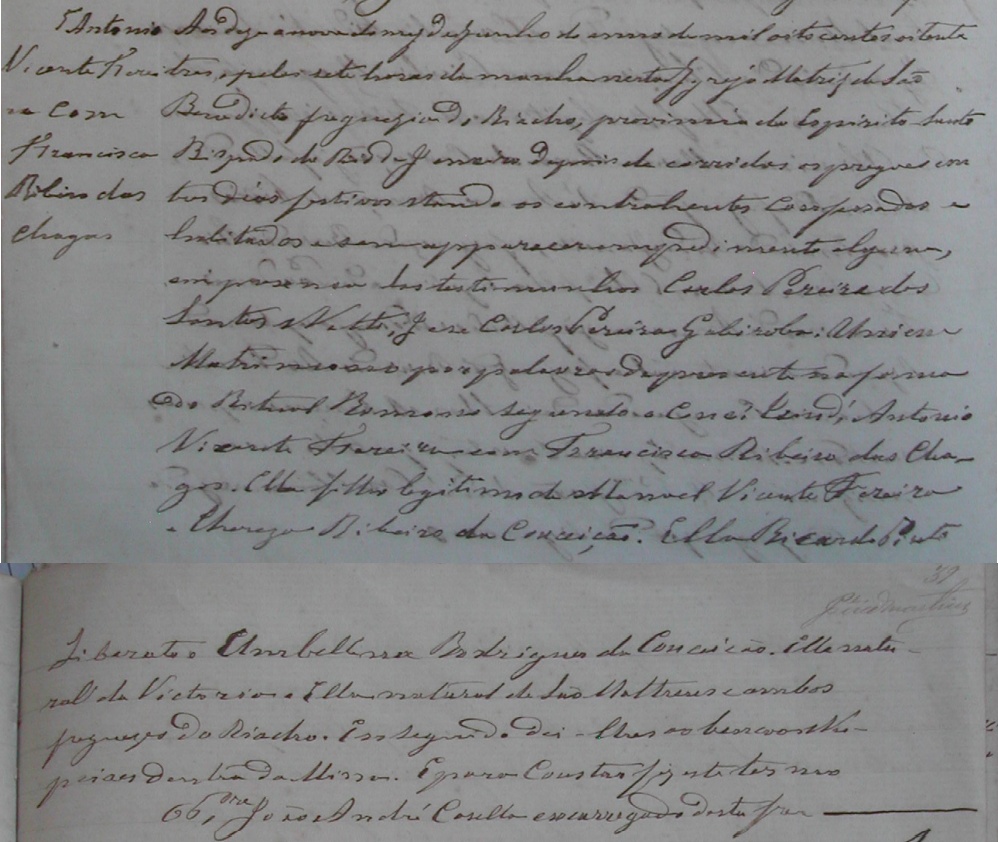 Antonio
Vicente Ferei
ra com
Francisca
Ribeiro das
Chagas
Aos deze a nove do mez de Junho do anno de mil oito centos oitenta
tres, pelas sete horas da manha nesta Igreja Matriz de São
Benedicto freguezia do Riacho, provincia do Espirito Santo
Bispado do Rio de Janeiro depois de corridos os pregoes em
tres dias festivos stando os contrahentes confessados e
habilitados e sem apparecer impedimento algum,
em presença das testimunhas Carlos Pereira dos
Santos e Netto, Jose Carlos Pereira Gabiroba: Uniem
Matrimonio por palavras de presente na forma
do Ritual Romano segundo o Conc. Trind, Antonio
Vicente Fereira com Francisca Ribeiro das Cha-
gas. Elle filho legitimo de Manoel Vicente Fereira
e Thereza Ribeiro da Conceição. Ella Ricardo Pinto
39
Liberato e Umbellina Rodrigues da Conceição. Elle natu-
ral da Victoria e Ella natural de São Matheus e ambos
freguezes do Riacho. Em seguida dei-lhes as bencoos Nu-
pciaes dentro da Missa. E para Constar fiz este termo
O P.re João André Casella encarregado desta fre